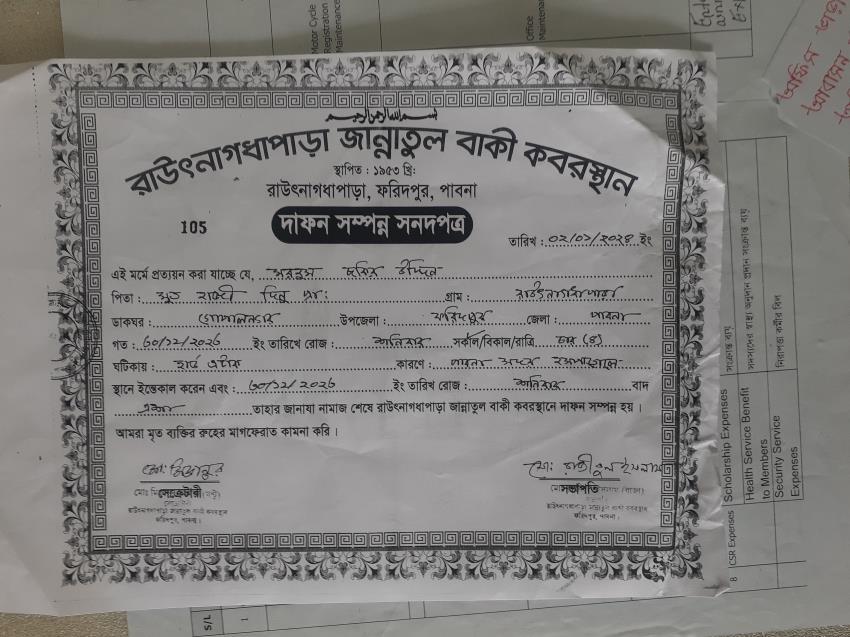 بسم الله الرحمن الرحيم
রাউৎনাগধাপাড়া জান্নাতুল বাকী কবরস্থান
স্থাপিত : ১৯৫৩ খ্রি:
রাউৎনাগধাপাড়া, ফরিদপুর, পাবনা
105
দাফন সম্পন্ন সনদপত্র
তারিখ : ০২/০১/২০২৪ ইং
এই মর্মে প্রত্যয়ন করা যাচ্ছে যে, উদ্দিন
পিতা : মৃত গ্রাম : রাউৎনাগধাপাড়া
ডাকঘর : গোপালনগর উপজেলা : ফরিদপুর জেলা : পাবনা
গত : ৩০/১২/২০২৩ ইং তারিখে রোজ : শনিবার সকাল/বিকাল/রাত্রি চার (৪)
ঘটিকায় : হার্ট এটাক কারণে : পাবনা সদর হাসপাতালে
স্থানে ইন্তেকাল করেন এবং : ৩০/১২/২০২৩ ইং তারিখ রোজ : শনিবার বাদ
এশা তাহার জানাযা নামাজ শেষে রাউৎনাগধাপাড়া জান্নাতুল বাকী কবরস্থানে দাফন সম্পন্ন হয়।
আমরা মৃত ব্যক্তির রুহের মাগফেরাত কামনা করি।
মোঃ মিজানুর
সেক্রেটারী
রাউৎনাগধাপাড়া জান্নাতুল বাকী কবরস্থান
ফরিদপুর, পাবনা।
মোঃ ইসলাম
সভাপতি
রাউৎনাগধাপাড়া জান্নাতুল বাকী কবরস্থান
ফরিদপুর, পাবনা।
Motor Cycle
Registration
Maintenance
Office
Maintena
Scholarship Expenses
Health Service Benefit
to Members
Security Service
Expenses
8 CSR Expenses
S/L
1
সংক্রান্ত ব্যয়
সদস্যদের স্বাস্থ্য অনুদান প্রদান সংক্রান্ত ব্যয়
নিরাপত্তা কর্মীর বিল